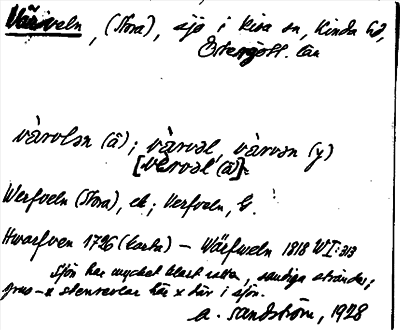 Värveln, (Stora), sjö i Kisa sn, Kinda hd,
Östergötl. län
vàrvlən (ä); vàrvəl, vàrvən (y)
[vèrvəl (ä)].
Werfveln (Stora), ek.; Verfveln, G.
Hwarfven 1726 (karta) – Wärfweln 1818 W I: 313
Sjön har mycket klart vatten, sandiga stränder;
grus- x stenrevlar här x där i sjön.
A. Sandström, 1928